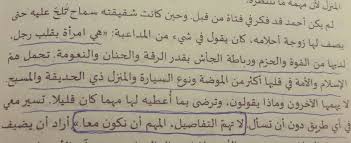 المنزل لأن مهمة ما تنتظره.
لم يكن أحمد قد فكر في فتاة من قبل. وحين كانت شقيقته سماح تُلحّ عليه حتى
يصف لها زوجة أحلامه، كان يقول في شيء من المداعبة: «هي امرأة بقلب رجل.
لديها من القوة والحزم ورباطة الجأش بقدر الرقة والحنان والنعومة. تحمل همّ
الإسلام والأمة في قلبها أكثر من الموضة ونوع السيارة والمنزل ذي الحديقة والمسبح
لا يهمها الآخرون وماذا يقولون، وترضى بما أعطيه لها مهما كان قليلا. تسير معي
في أي طريق دون أن تسأل. لا تهمّ التفاصيل، المهم أن نكون معا». أراد أن يضيف